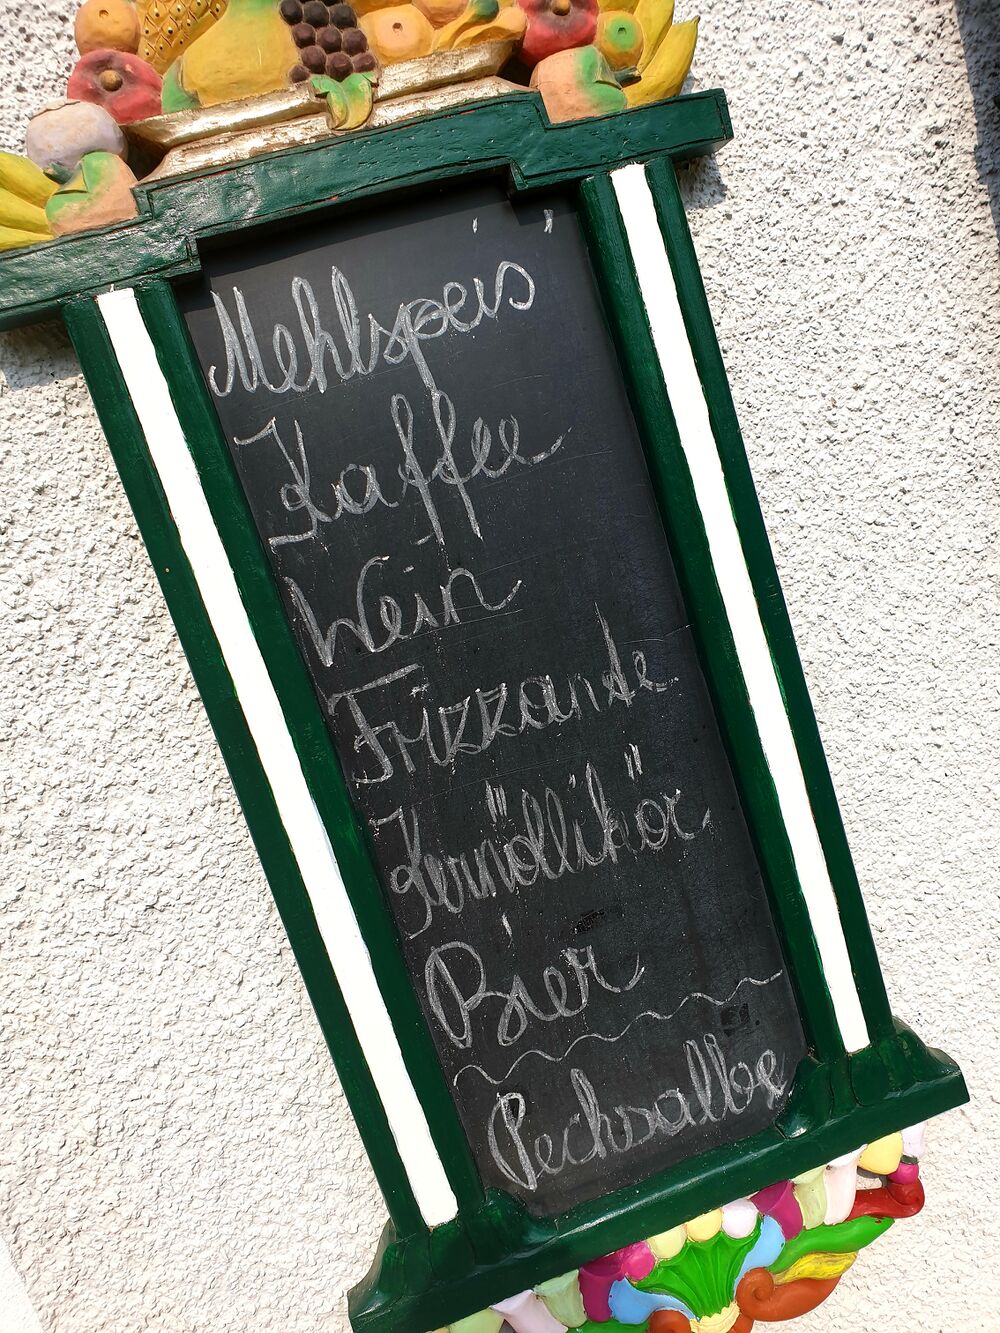 Mehlspeis'
Kaffee
Wein
Frizzante
Kernöllikör
Bier
Pechsalbe